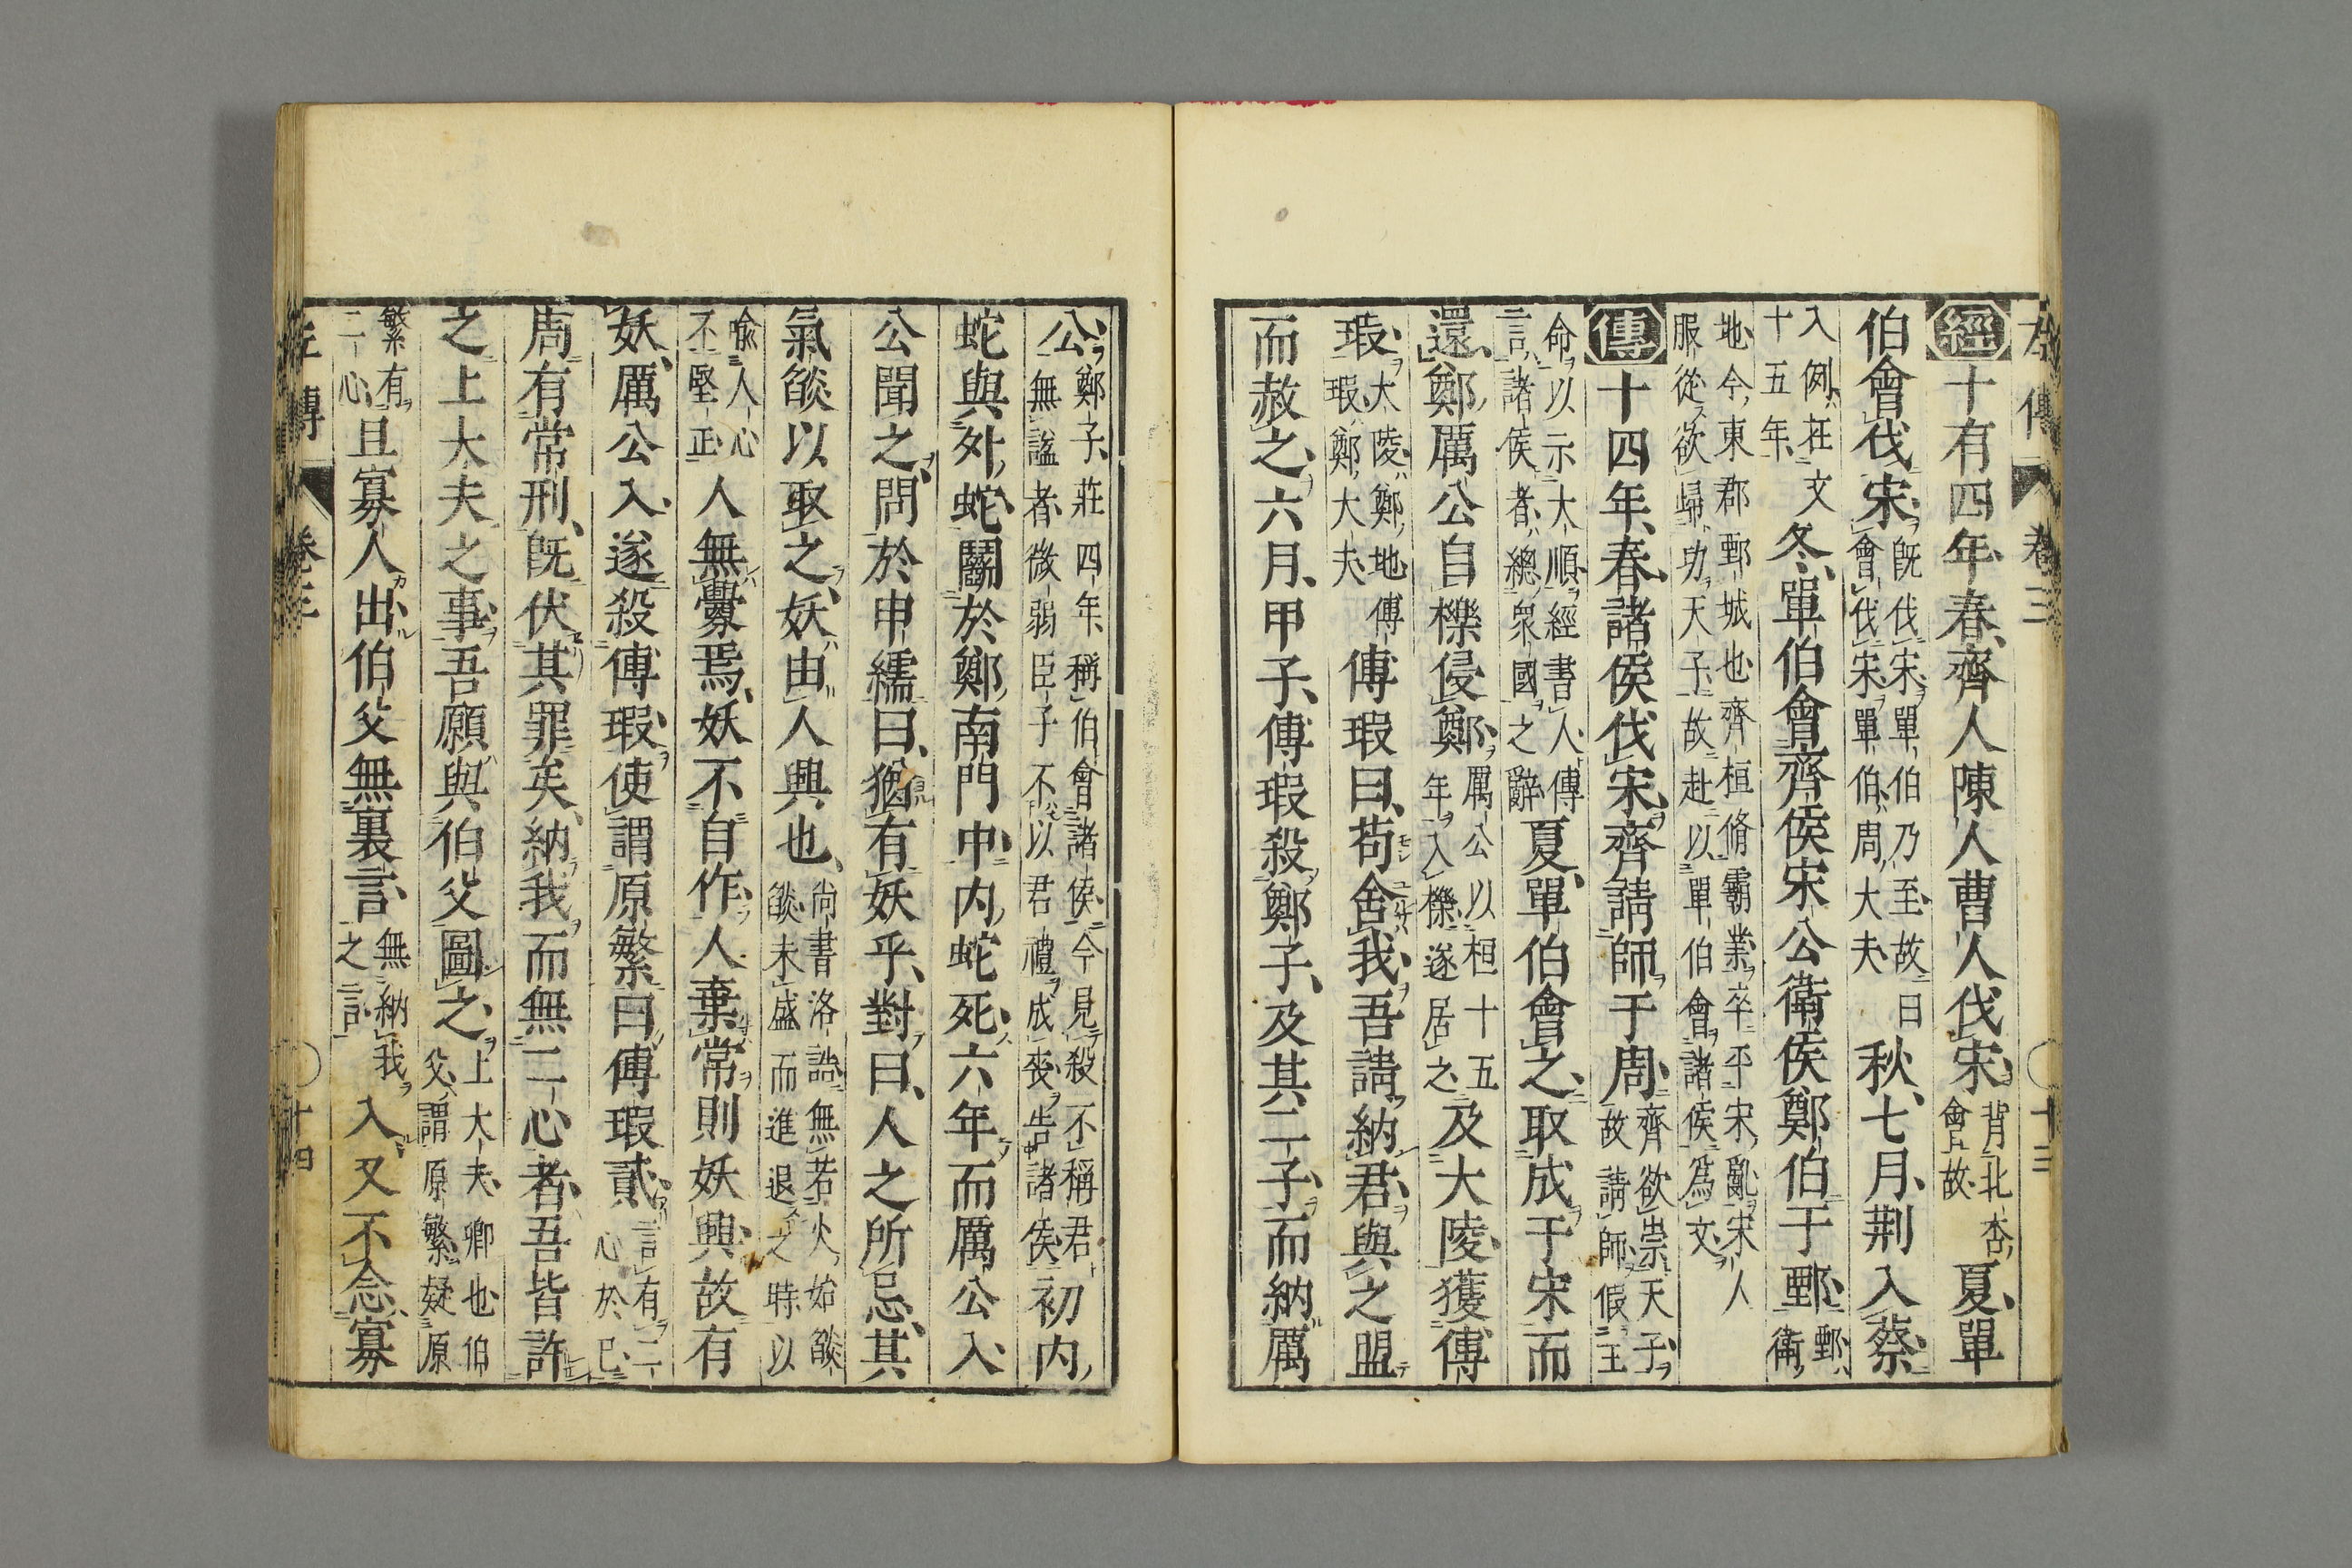 左傳 卷三 十三
經十有四年春、齊人陳人曹人伐宋背北杏會故夏、單
伯會伐宋既伐宋單伯乃至故曰會伐宋單伯周大夫秋、七月、荆入蔡
入例在文十五年冬、單伯會齊侯宋公衛侯鄭伯于鄄鄄衛
地今東郡鄄城也齊桓脩霸業卒平宋亂宋人服從欲歸功天子故赴以單伯會諸侯爲文
傳十四年、春、諸侯伐宋、齊請師于周齊欲崇天子故請師假王
命以示大順經書人傳言諸侯者總衆國之辭夏、單伯會之、取成于宋而
還、鄭厲公自櫟侵鄭、厲公以桓十五年入櫟遂居之及大陵獲傅
瑕、大陵鄭地傅瑕鄭大夫傅瑕曰、苟舍我、吾請納君、與之盟
而赦之、六月、甲子、傅瑕殺鄭子、及其二子、而納厲
公、鄭子莊四年稱伯會諸侯今見殺不稱君無謚者微弱臣子不以君禮成喪告諸侯初内
蛇與外蛇鬭於鄭南門中、内蛇死、六年而厲公入、
公聞之、問於申繻曰、猶有妖乎、對曰、人之所忌、其
氣燄以取之、妖由人興也、尚書洛誥無若火始燄燄未盛而進退之時以
喩人心不堅正人無釁焉、妖不自作、人棄常則妖興、故有
妖、厲公入、遂殺傅瑕、使謂原繁曰、傅瑕貳、言有二心於己
周有常刑、既伏其罪矣、納我而無二心者、吾皆許
之上大夫之事、吾願與伯父圖之、上大夫卿也伯父謂原繁疑原
繁有二心且寡人出、伯父無裏言、無納我之言入、又不念寡
左傳 卷三 十四